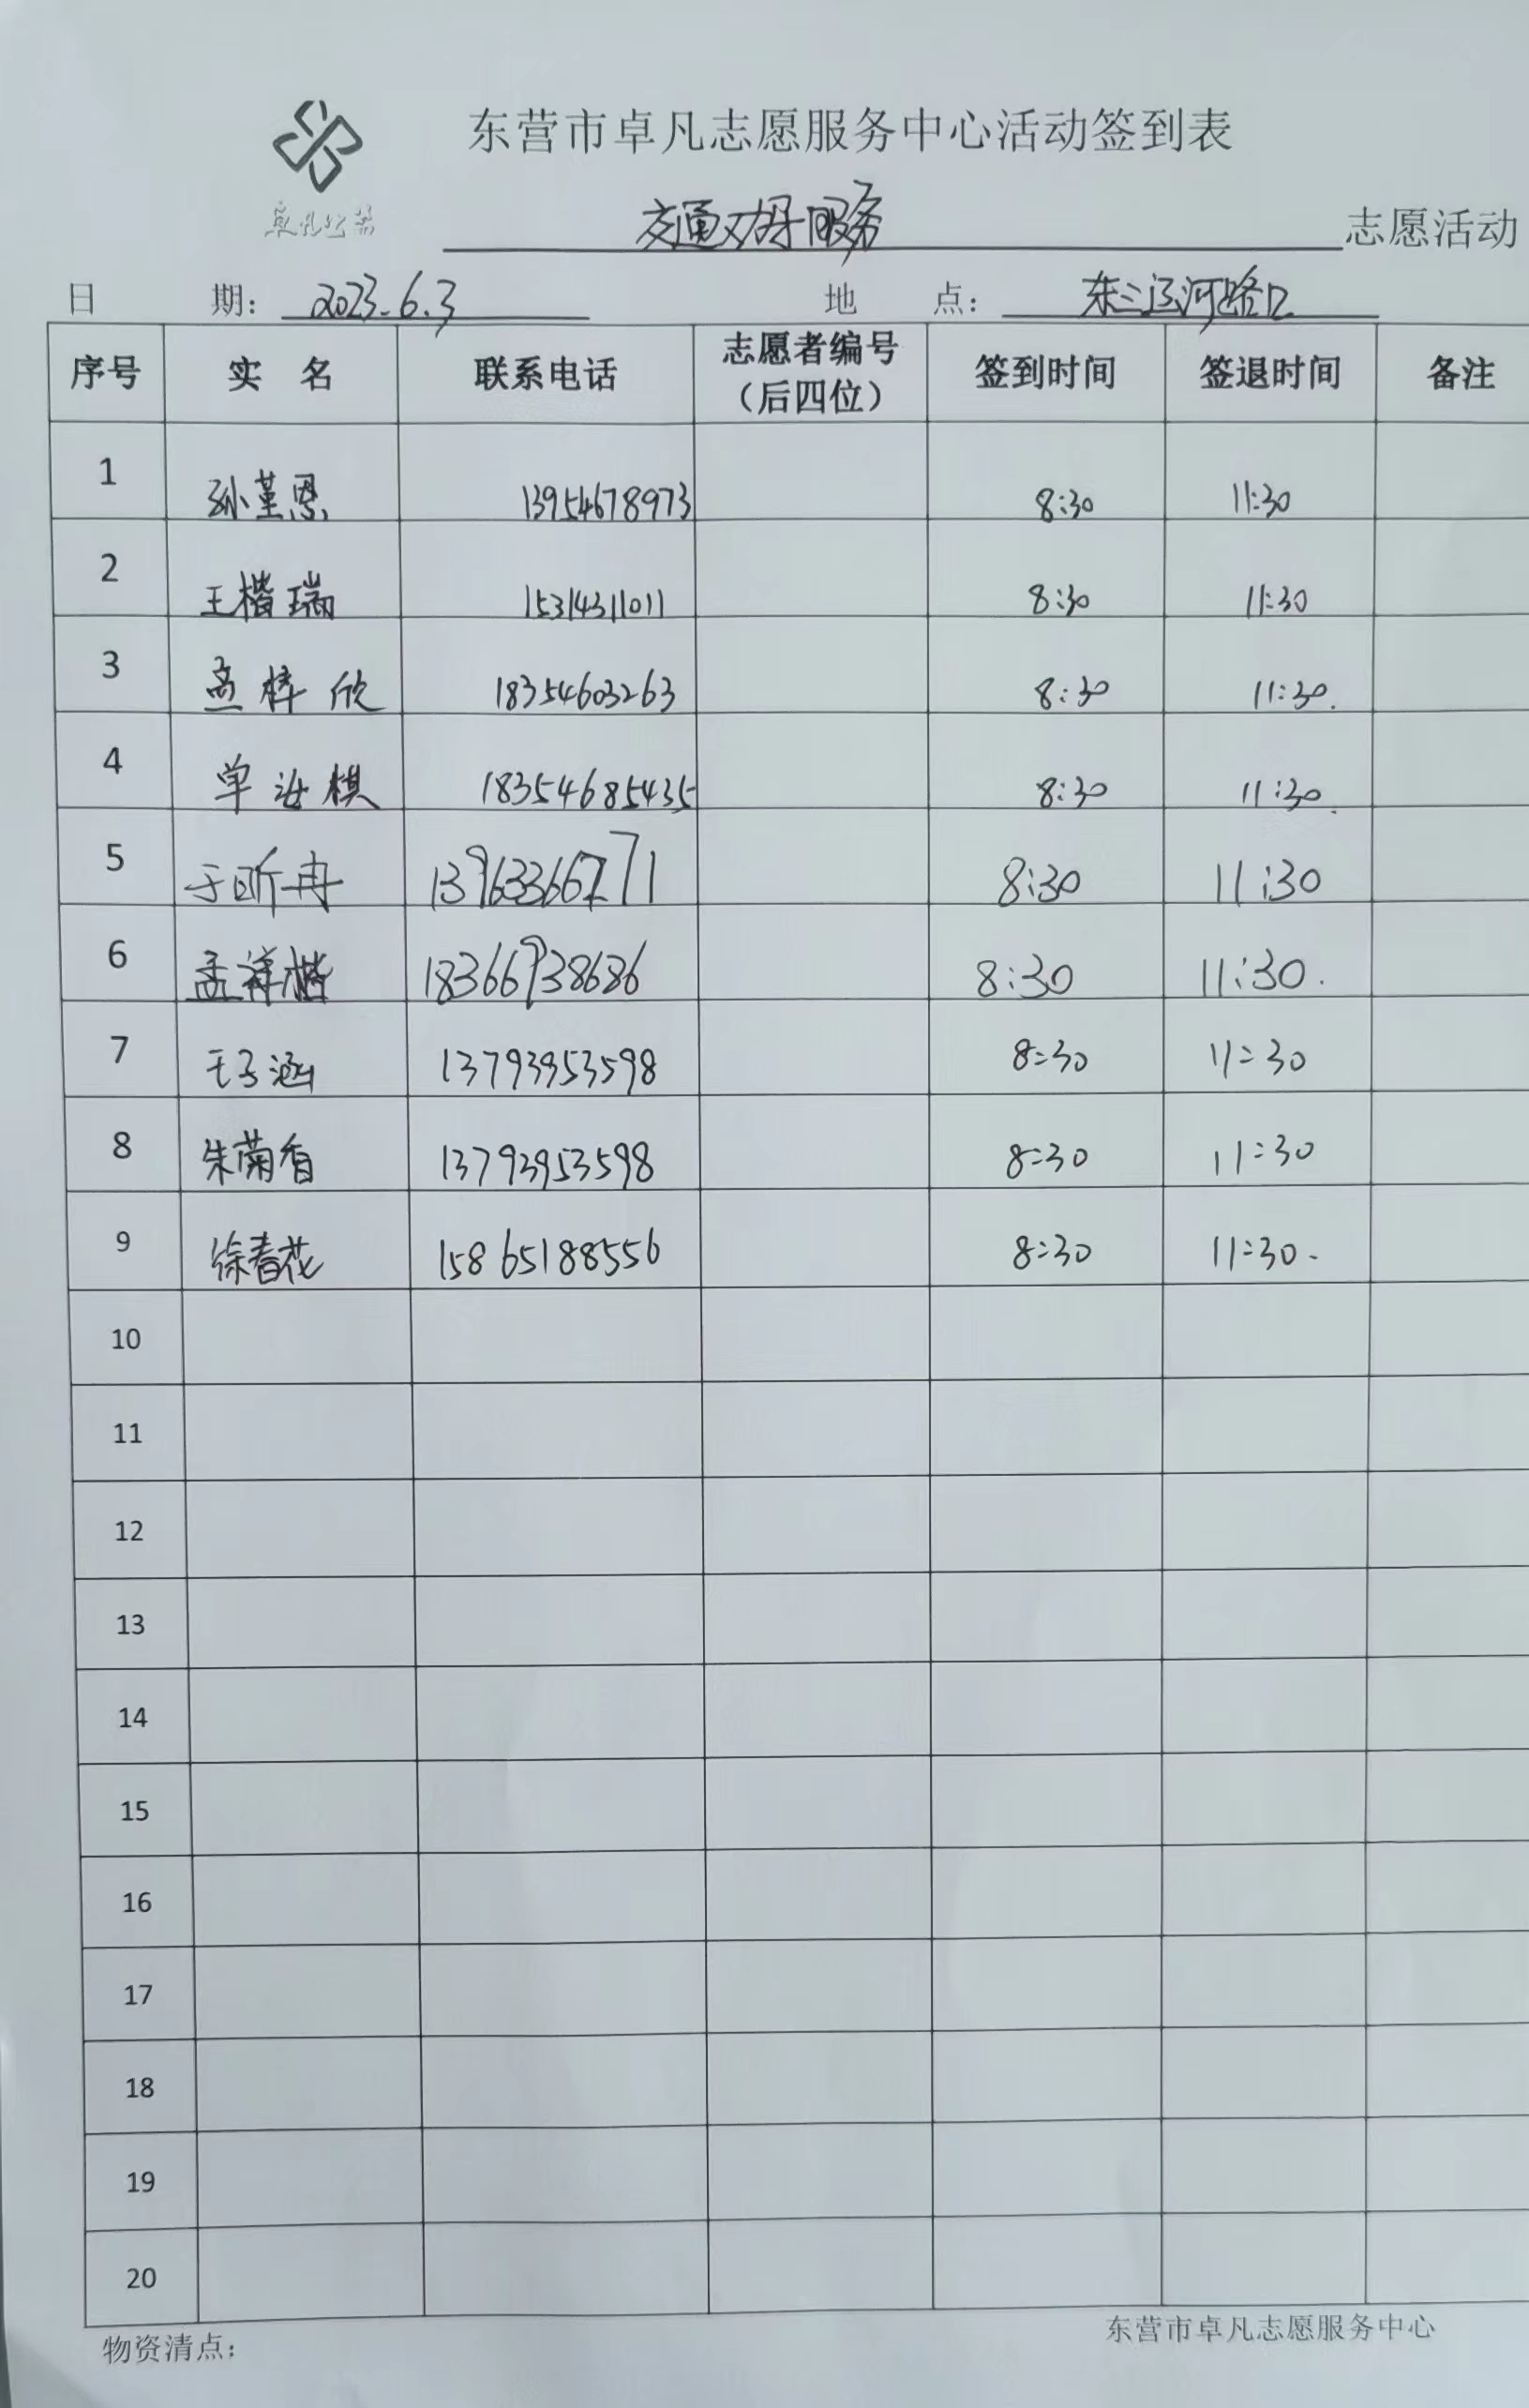 东营市卓凡志愿服务中心活动签到表
卓凡公益
交通劝导服务 志愿活动
日 期: 2023.6.3 地 点: 东三运河路口
序号 实 名 联系电话 志愿者编号（后四位） 签到时间 签退时间 备注
1 孙堇恩 13954678973 8:30 11:30
2 王楷瑞 15314311011 8:30 11:30
3 孟梓欣 18354603263 8:30 11:30.
4 单汝棋 18354685435 8:30 11:30.
5 于昕冉 8:30 11:30
6 孟祥楷 18366938686 8:30 11:30.
7 王子涵 13793953598 8:30 11:30
8 朱菊香 13793953598 8:30 11:30
9 徐春花 15865188556 8:30 11:30.
10
11
12
13
14
15
16
17
18
19
20
物资清点: 东营市卓凡志愿服务中心